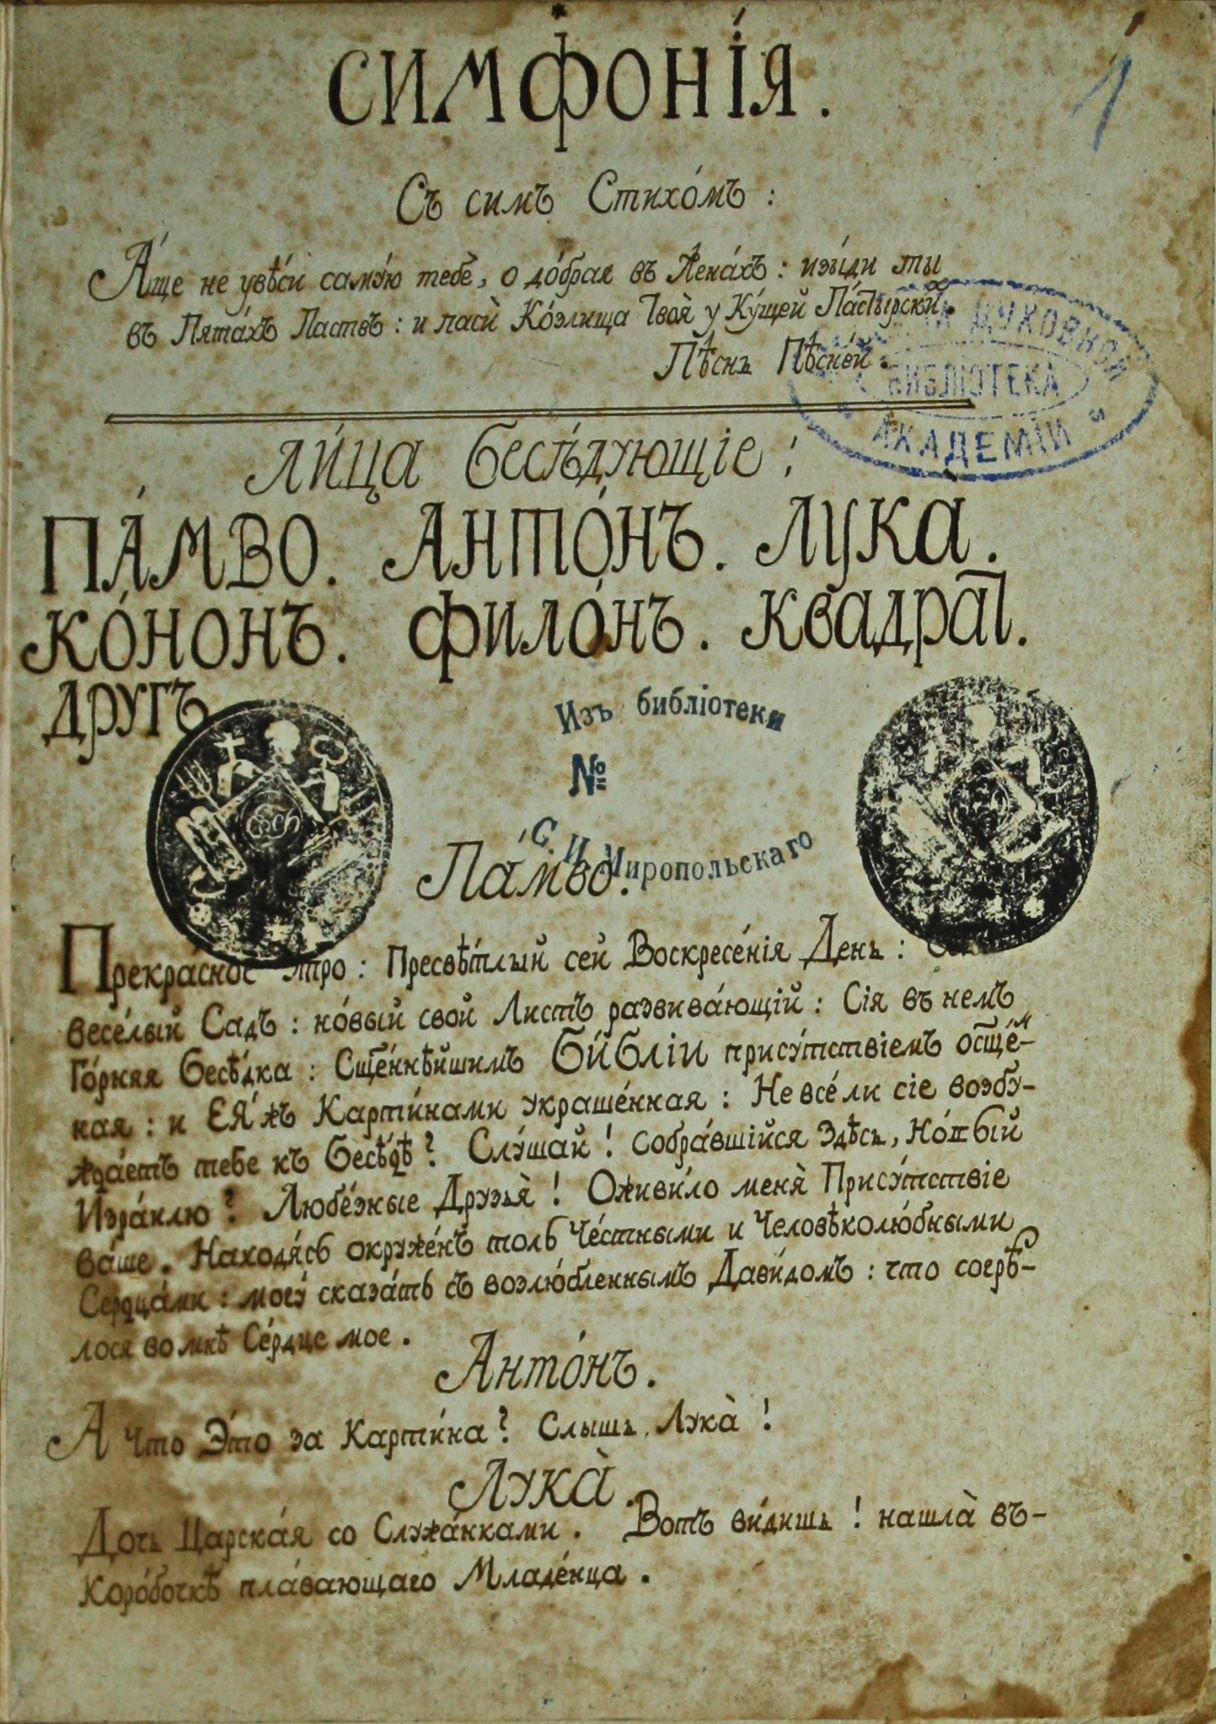 СИМФОНІ́Я.
1
Съ симъ Стихо́мъ:
А́ще не увѣ́си саму́ю тебѐ, о до́брая въ Жена́хъ: изы́ди ты
въ Пята́хъ Паствъ: и пасѝ Ко́злища Твоя̀ у Ку́щей Па́стырскихъ.
Пѣснь Пѣсне́й.
ДУХОВНОЙ
БИБЛІОТЕКА
АКАДЕМІИ
Ли́ца бесѣ́дующіе:
ПА́МВО. АНТО́НЪ. ЛУКА̀.
КО́НОНЪ. ФИЛО́НЪ. КВАДРАТ.
ДРУГЪ
Изъ библіотеки
№
С. И. Миропольскаго
Па́мво.
Прекра́сное Утро: Пресвѣ́тлый сей Воскресе́нія День:
весе́лый Садъ: но́вый свой Листъ развива́ющій: Сія въ немъ
Го́рняя Бесѣ́дка: Сщ҃е́ннѣйшимъ БИ́БЛІИ прису́тствіемъ осщ҃е́н-
ная: и ЕЯ́жъ Карти́нами украше́нная: Не все́ ли сіе возбу-
жда́етъ тебе къ Бесѣ́дѣ? Слу́шай! собра́вшійся здѣсь, Но́вый
Изра́илю? Любе́зные Друзья̀! Оживи́ло меня̀ Прису́тствіе
ва́ше. Находя́сь окруже́нъ толь Че́стными и Человѣколю́бными
Сердца́ми: могу̀ сказа́ть съ возлю́бленнымъ Дави́домъ: что согрѣ́-
лося во мнѣ Се́рдце мое.
Анто́нъ.
А что Э́то за Карти́на? Слышь, Лука̀!
Лука̀.
Дочь Царска́я со Служа́нками. Вотъ ви́дишь! нашла̀ въ-
Коро́бочкѣ пла́вающаго Младе́нца.